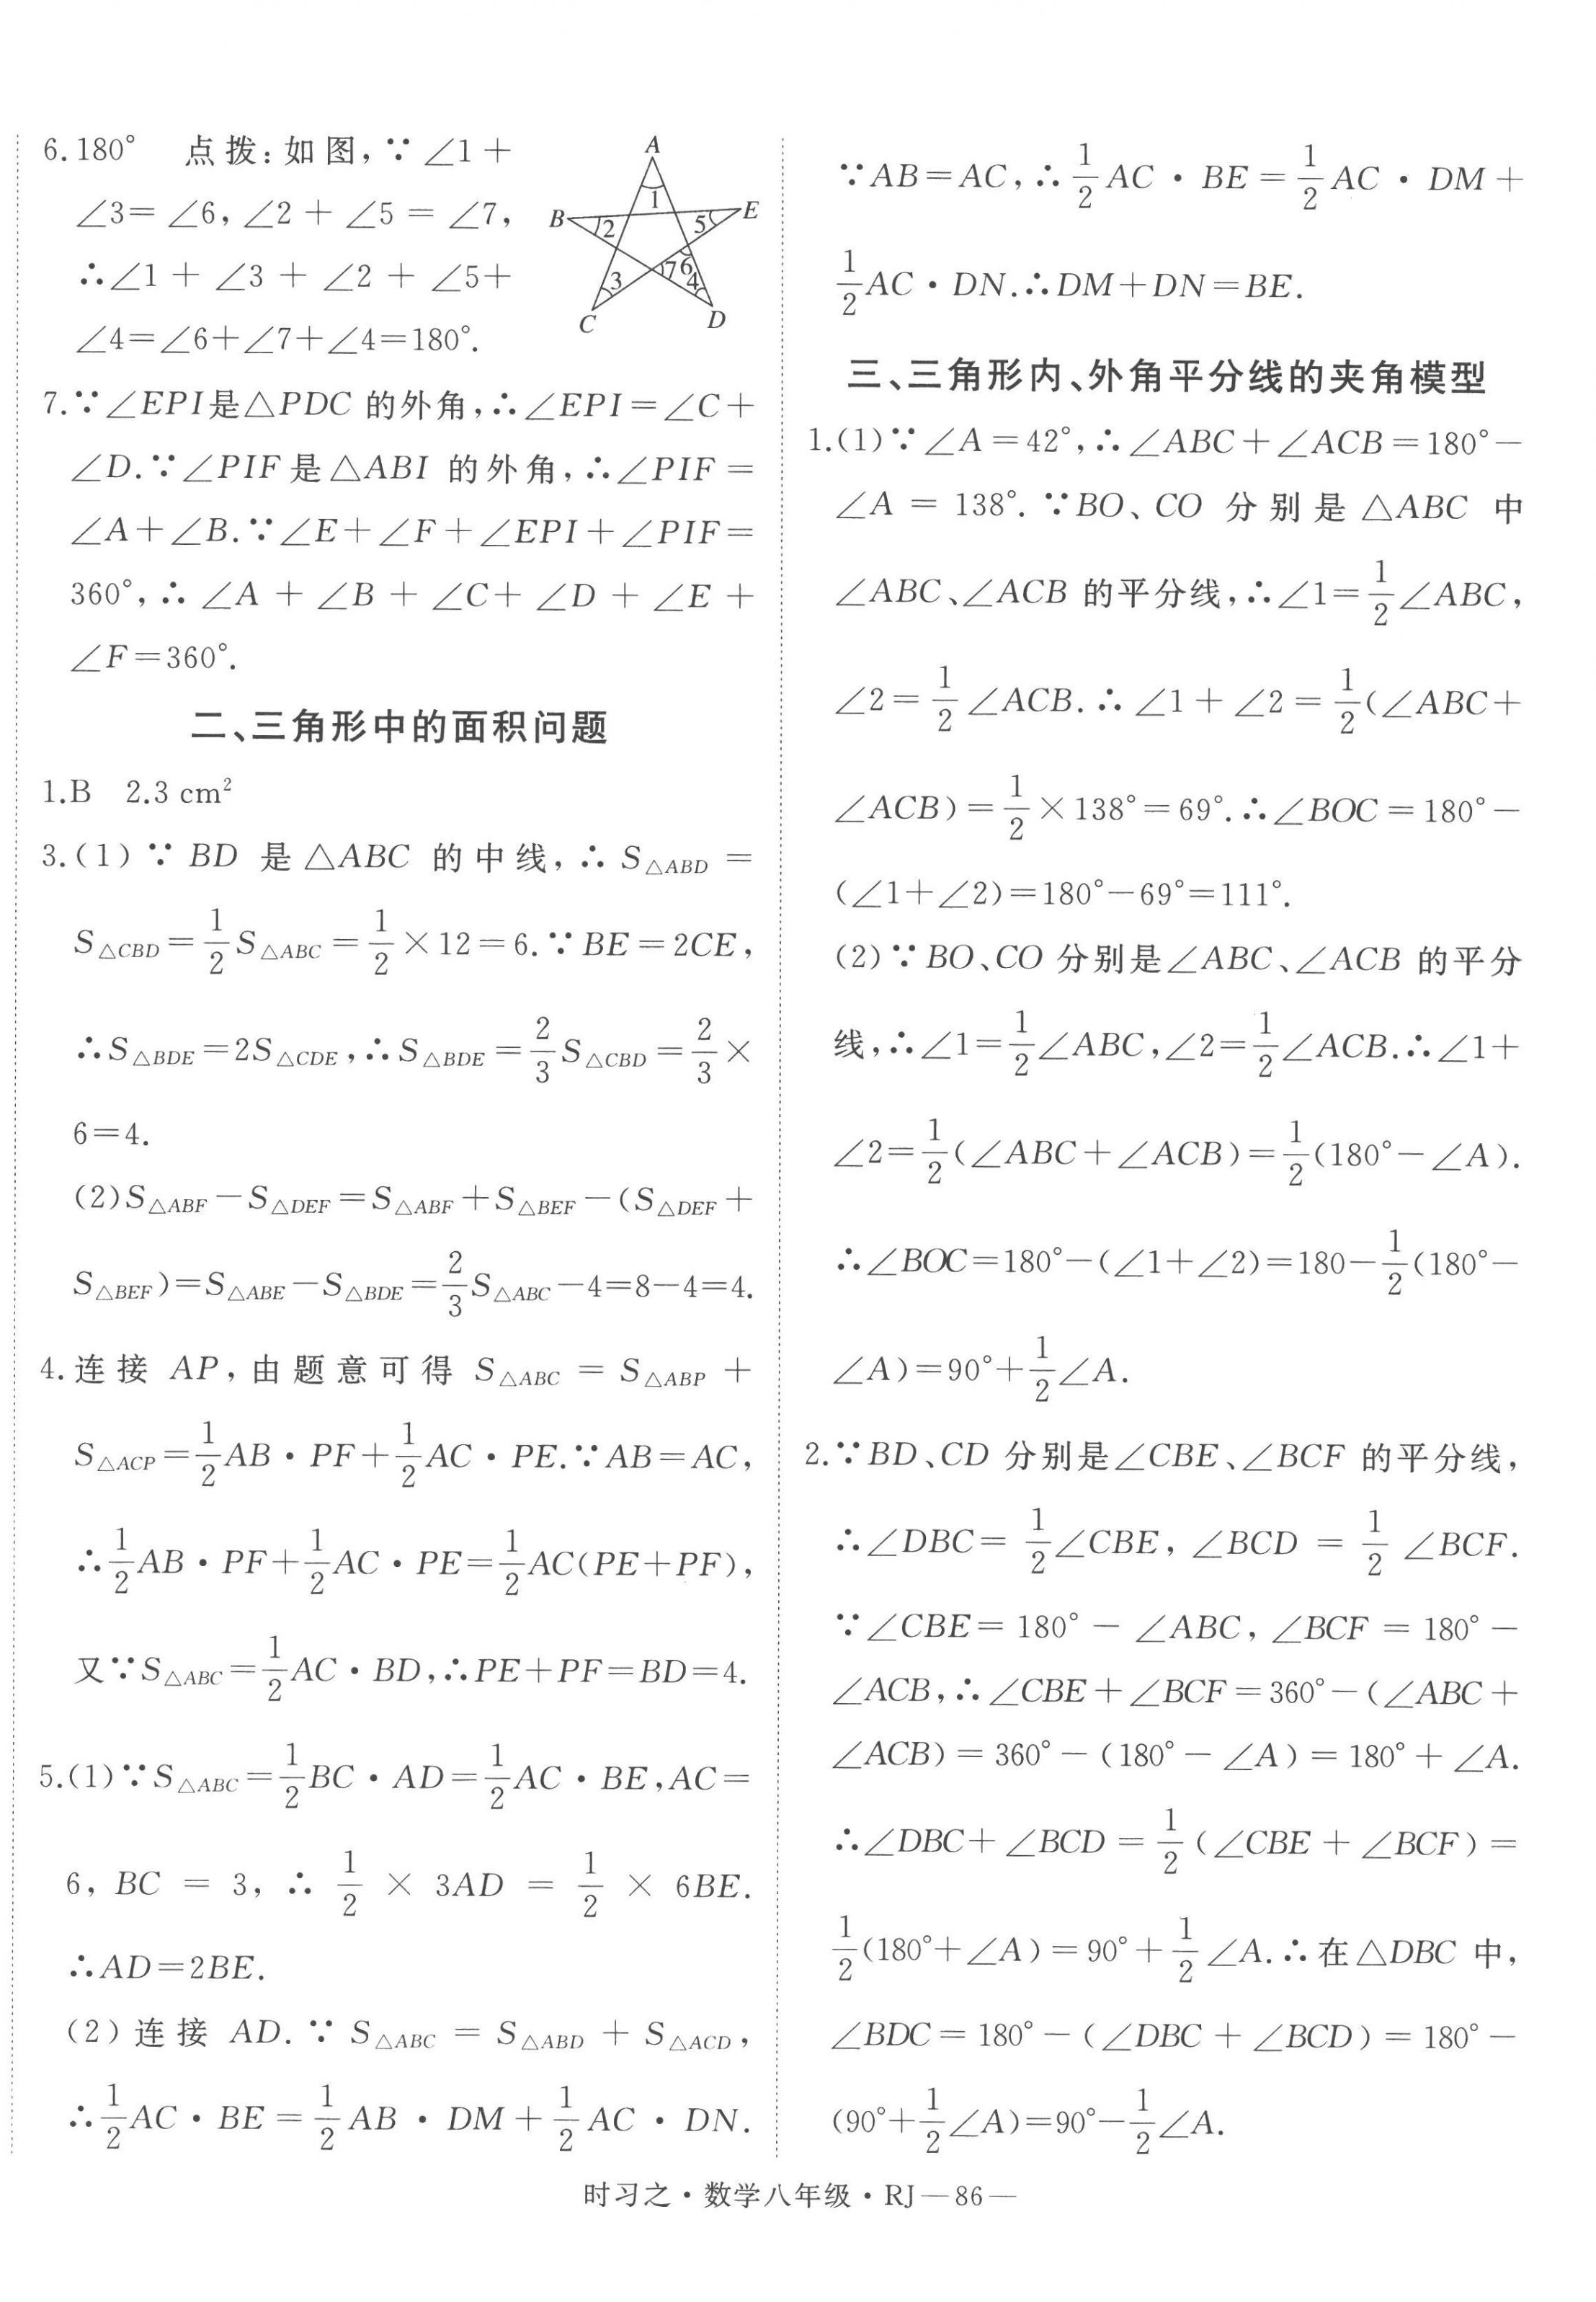 6.180° 点拨:如图,∵∠1+
∠3=∠6,∠2+∠5=∠7,
∴∠1+∠3+∠2+∠5+
∠4=∠6+∠7+∠4=180°.
A
B
E
C
D
1
2
5
3
7
6
4
7.∵∠EPI是△PDC的外角,∴∠EPI=∠C+
∠D.∵∠PIF是△ABI的外角,∴∠PIF=
∠A+∠B.∵∠E+∠F+∠EPI+∠PIF=
360°,∴∠A+∠B+∠C+∠D+∠E+
∠F=360°.
二、三角形中的面积问题
1.B 2.3 cm²
3.(1)∵BD是△ABC的中线,∴S△ABD=
S△CBD=1/2S△ABC=1/2×12=6.∵BE=2CE,
∴S△BDE=2S△CDE,∴S△BDE=2/3S△CBD=2/3×
6=4.
(2)S△ABF-S△DEF=S△ABF+S△BEF-(S△DEF+
S△BEF)=S△ABE-S△BDE=2/3S△ABC-4=8-4=4.
4.连接AP,由题意可得S△ABC=S△ABP+
S△ACP=1/2AB·PF+1/2AC·PE.∵AB=AC,
∴1/2AB·PF+1/2AC·PE=1/2AC(PE+PF),
又∵S△ABC=1/2AC·BD,∴PE+PF=BD=4.
5.(1)∵S△ABC=1/2BC·AD=1/2AC·BE,AC=
6,BC=3,∴1/2×3AD=1/2×6BE.
∴AD=2BE.
(2)连接AD.∵S△ABC=S△ABD+S△ACD,
∴1/2AC·BE=1/2AB·DM+1/2AC·DN.
∵AB=AC,∴1/2AC·BE=1/2AC·DM+
1/2AC·DN.∴DM+DN=BE.
三、三角形内、外角平分线的夹角模型
1.(1)∵∠A=42°,∴∠ABC+∠ACB=180°-
∠A=138°.∵BO、CO分别是△ABC中
∠ABC、∠ACB的平分线,∴∠1=1/2∠ABC,
∠2=1/2∠ACB.∴∠1+∠2=1/2(∠ABC+
∠ACB)=1/2×138°=69°.∴∠BOC=180°-
(∠1+∠2)=180°-69°=111°.
(2)∵BO、CO分别是∠ABC、∠ACB的平分
线,∴∠1=1/2∠ABC,∠2=1/2∠ACB.∴∠1+
∠2=1/2(∠ABC+∠ACB)=1/2(180°-∠A).
∴∠BOC=180°-(∠1+∠2)=180-1/2(180°-
∠A)=90°+1/2∠A.
2.∵BD、CD分别是∠CBE、∠BCF的平分线,
∴∠DBC=1/2∠CBE,∠BCD=1/2∠BCF.
∵∠CBE=180°-∠ABC,∠BCF=180°-
∠ACB,∴∠CBE+∠BCF=360°-(∠ABC+
∠ACB)=360°-(180°-∠A)=180°+∠A.
∴∠DBC+∠BCD=1/2(∠CBE+∠BCF)=
1/2(180°+∠A)=90°+1/2∠A.∴在△DBC中,
∠BDC=180°-(∠DBC+∠BCD)=180°-
(90°+1/2∠A)=90°-1/2∠A.
时习之·数学八年级·RJ—86—